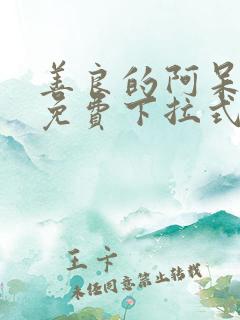 善良的阿呆
免费下拉式
王卡
未经同意禁止转载